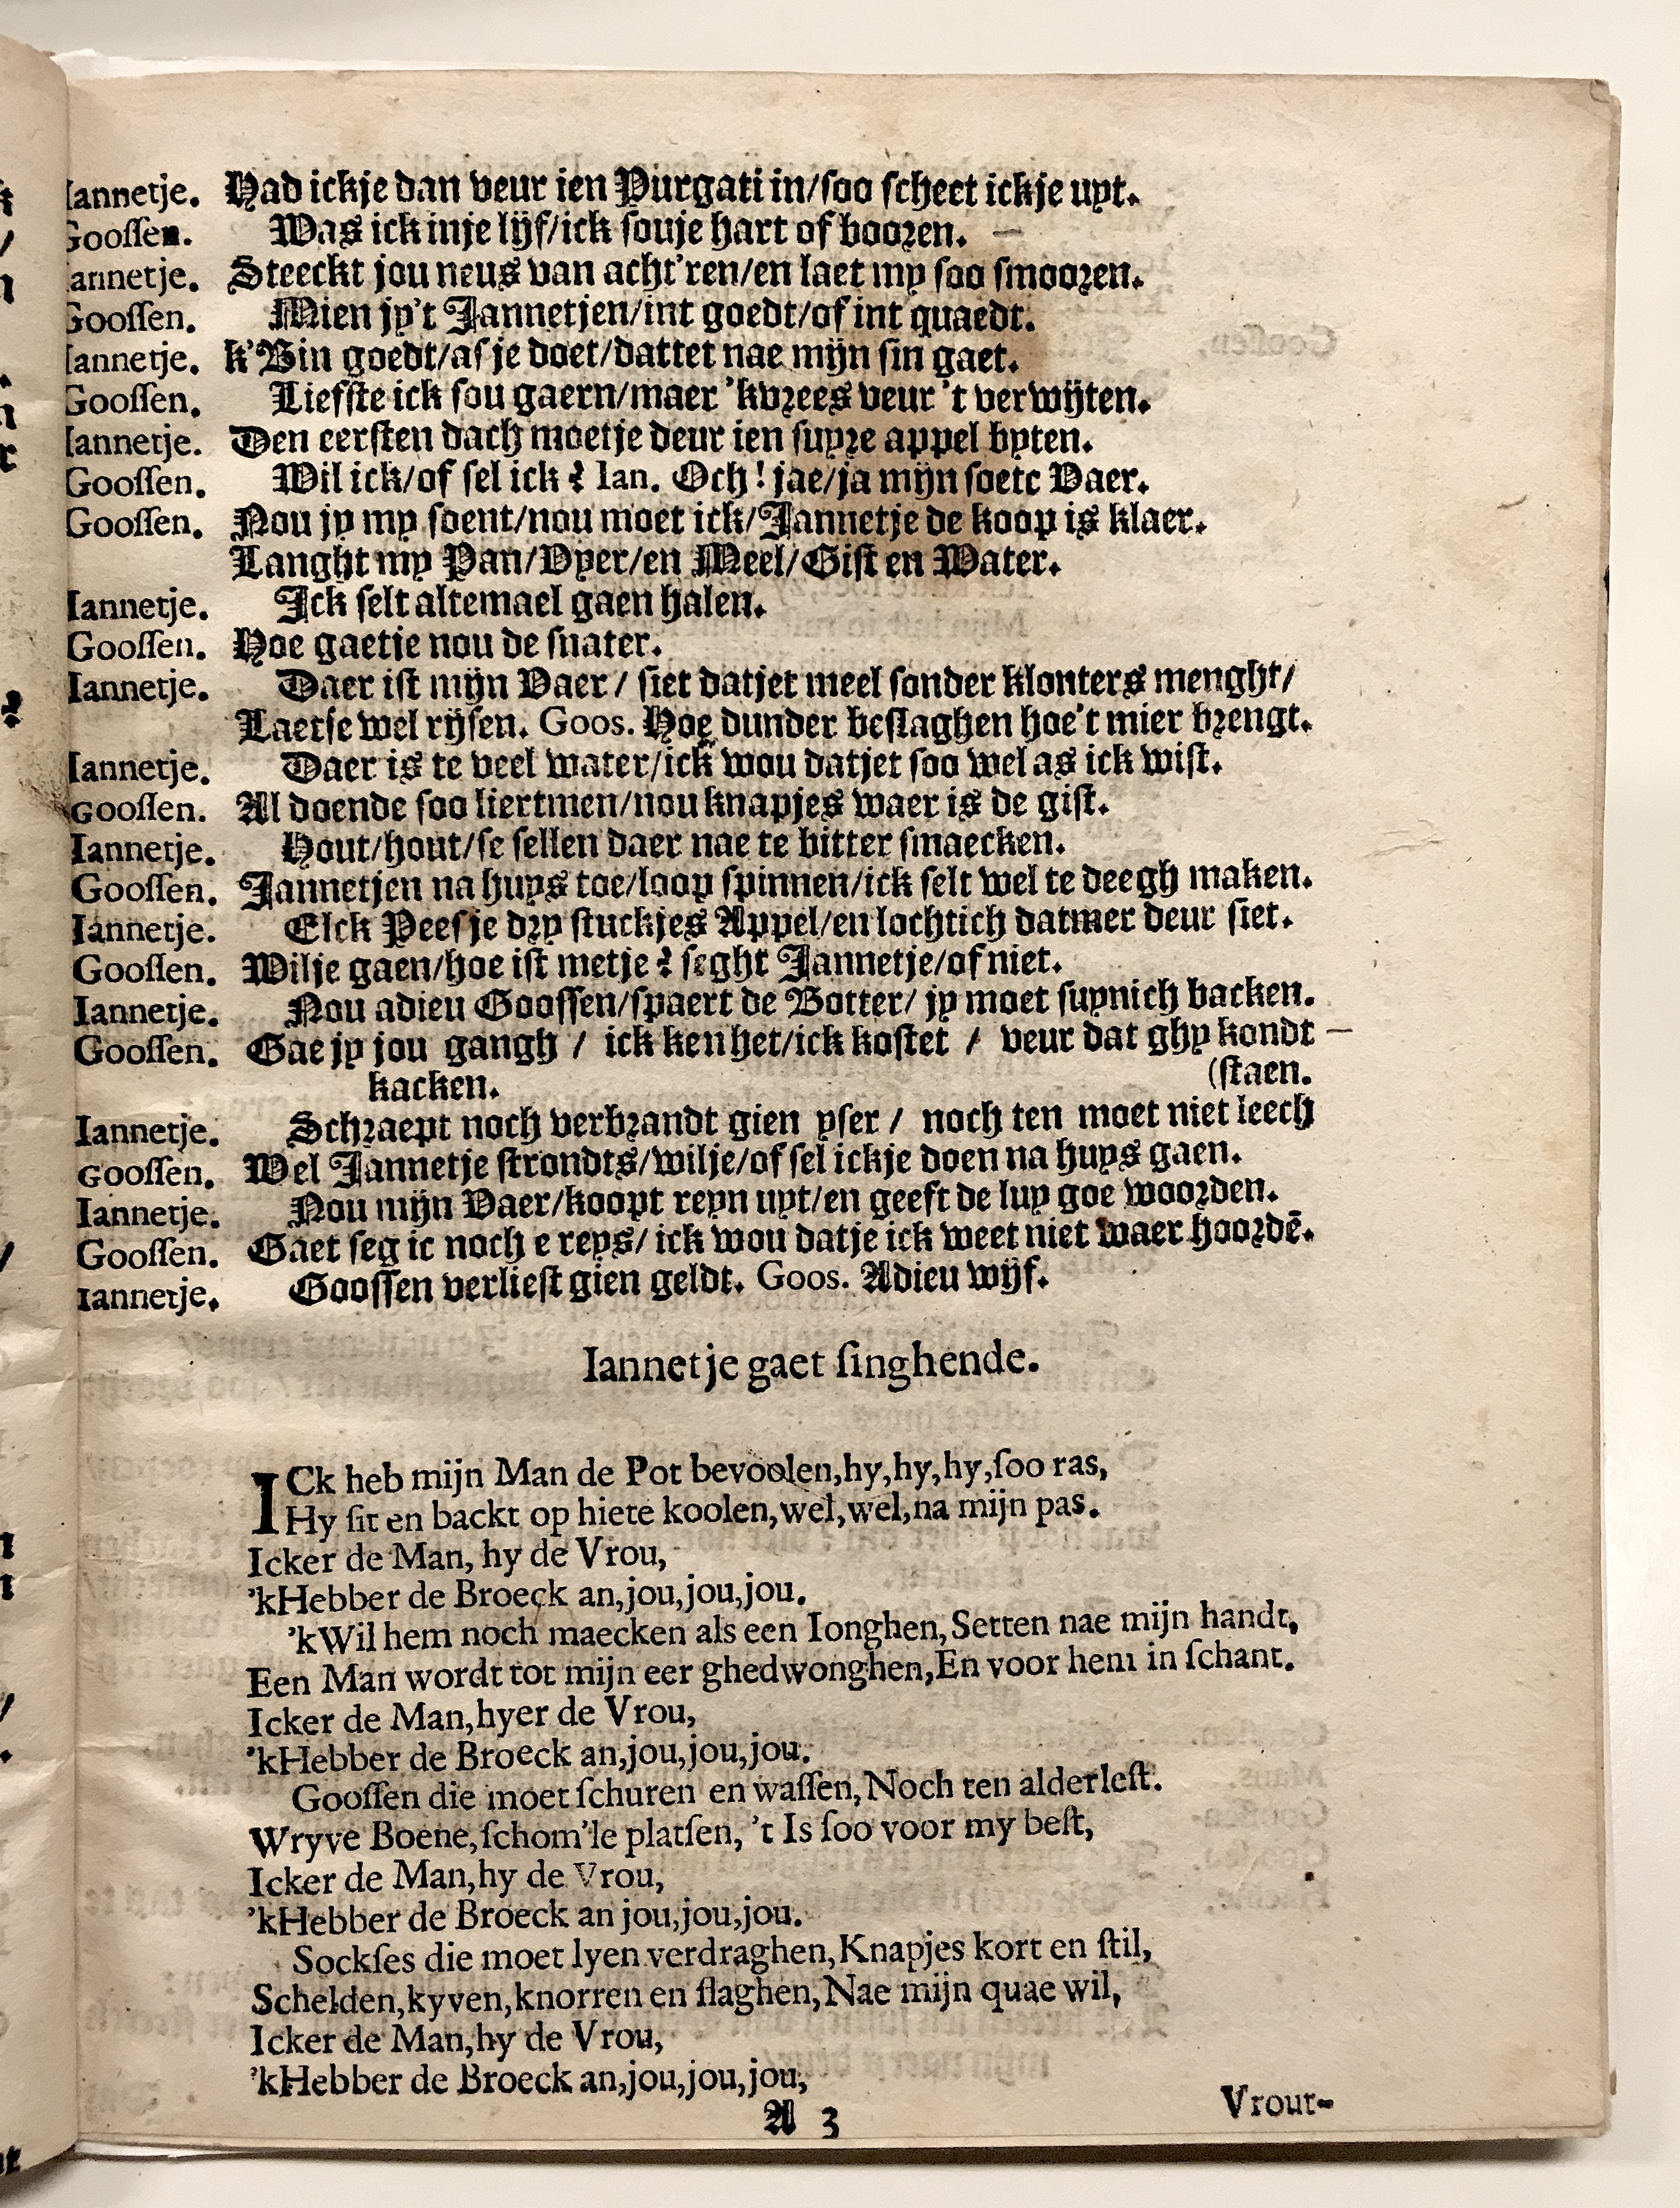 Iannetje. Had ickje dan veur ien Purgati in/soo scheet ickje uyt.
Goossen. Was ick inje lijf/ick souje hart of boozen.
Iannetje. Steeckt jou neus van acht'ren/en laet my soo smooren.
Goossen. Mien jy't Jannetjen/int goedt/of int quaedt.
Iannetje. k'Bin goedt/as je doet/dattet nae mijn sin gaet.
Goossen. Liefste ick sou gaern/maer 'kvrees veur 't verwijten.
Iannetje. Den eersten dach moetje deur ien suyre appel byten.
Goossen. Wil ick/of sel ick? Ian. Och! jae/ja mijn soete Vaer.
Goossen. Nou jy my soent/nou moet ick/Jannetje de koop is klaer.
Langht my Pan/Vyer/en Meel/Gist en Water.
Iannetje. Ick selt altemael gaen halen.
Goossen. Hoe gaetje nou de snater.
Iannetje. Daer ist mijn Vaer/ siet datjet meel sonder klonters menght/
Laetse wel rijsen. Goos. Hoe dunder beslaghen hoe't mier brengt.
Iannetje. Daer is te veel water/ick wou datjet soo wel as ick wist.
Goossen. Al doende soo liertmen/nou knapjes waer is de gist.
Iannetje. Hout/hout/se sellen daer nae te bitter smaecken.
Goossen. Jannetjen na huys toe/loop spinnen/ick selt wel te deegh maken.
Iannetje. Elck Peesje dry stuckjes Appel/en lochtich datmer deur siet.
Goossen. Wilje gaen/hoe ist metje? seght Jannetje/of niet.
Iannetje. Nou adieu Goossen/spaert de Botter/ jy moet suynich backen.
Goossen. Gae jy jou gangh / ick ken het/ick kostet / veur dat ghy kondt
kacken. (staen.
Iannetje. Schraept noch verbrandt gien yser / noch ten moet niet leech
Goossen. Wel Jannetje strondts/wilje/of sel ickje doen na huys gaen.
Iannetje. Nou mijn Vaer/koopt reyn uyt/en geeft de luy goe woorden.
Goossen. Gaet seg ic noch e reys/ ick wou datje ick weet niet waer hoordē.
Iannetje. Goossen verliest gien geldt. Goos. Adieu wijf.
Iannetje gaet singhende.
ICk heb mijn Man de Pot bevoolen,hy,hy,hy,soo ras,
Hy sit en backt op hiete koolen,wel,wel,na mijn pas.
Icker de Man, hy de Vrou,
'kHebber de Broeck an,jou,jou,jou.
'kWil hem noch maecken als een Ionghen,Setten nae mijn handt,
Een Man wordt tot mijn eer ghedwonghen,En voor hem in schant.
Icker de Man,hyer de Vrou,
'kHebber de Broeck an,jou,jou,jou.
Goossen die moet schuren en wassen,Noch ten alderlest.
Wryve Boene,schom'le platsen, 't Is soo voor my best,
Icker de Man,hy de Vrou,
'kHebber de Broeck an jou,jou,jou.
Sockses die moet lyen verdraghen,Knapjes kort en stil,
Schelden,kyven,knorren en slaghen,Nae mijn quae wil,
Icker de Man,hy de Vrou,
'kHebber de Broeck an,jou,jou,jou,
A 3
Vrout-